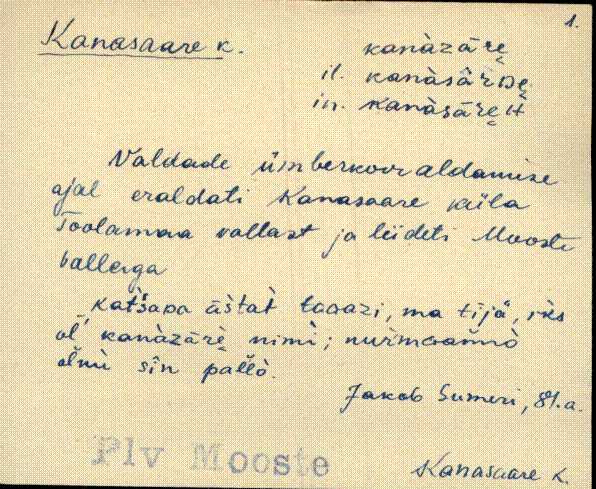 1.
Kanasaare k.
kanàzārę
il. kanàsârDę
in. kanàsāręH
Valdade ümberkorraldamise
ajal eraldati Kanasaare küla
Toolamaa vallast ja liideti Mooste
vallaga
ol' kanàzārè nimi; nurmoannò
olnu sîn pallò.
Jakob Sumeri, 81. a.
Plv Mooste
Kanasaare k.